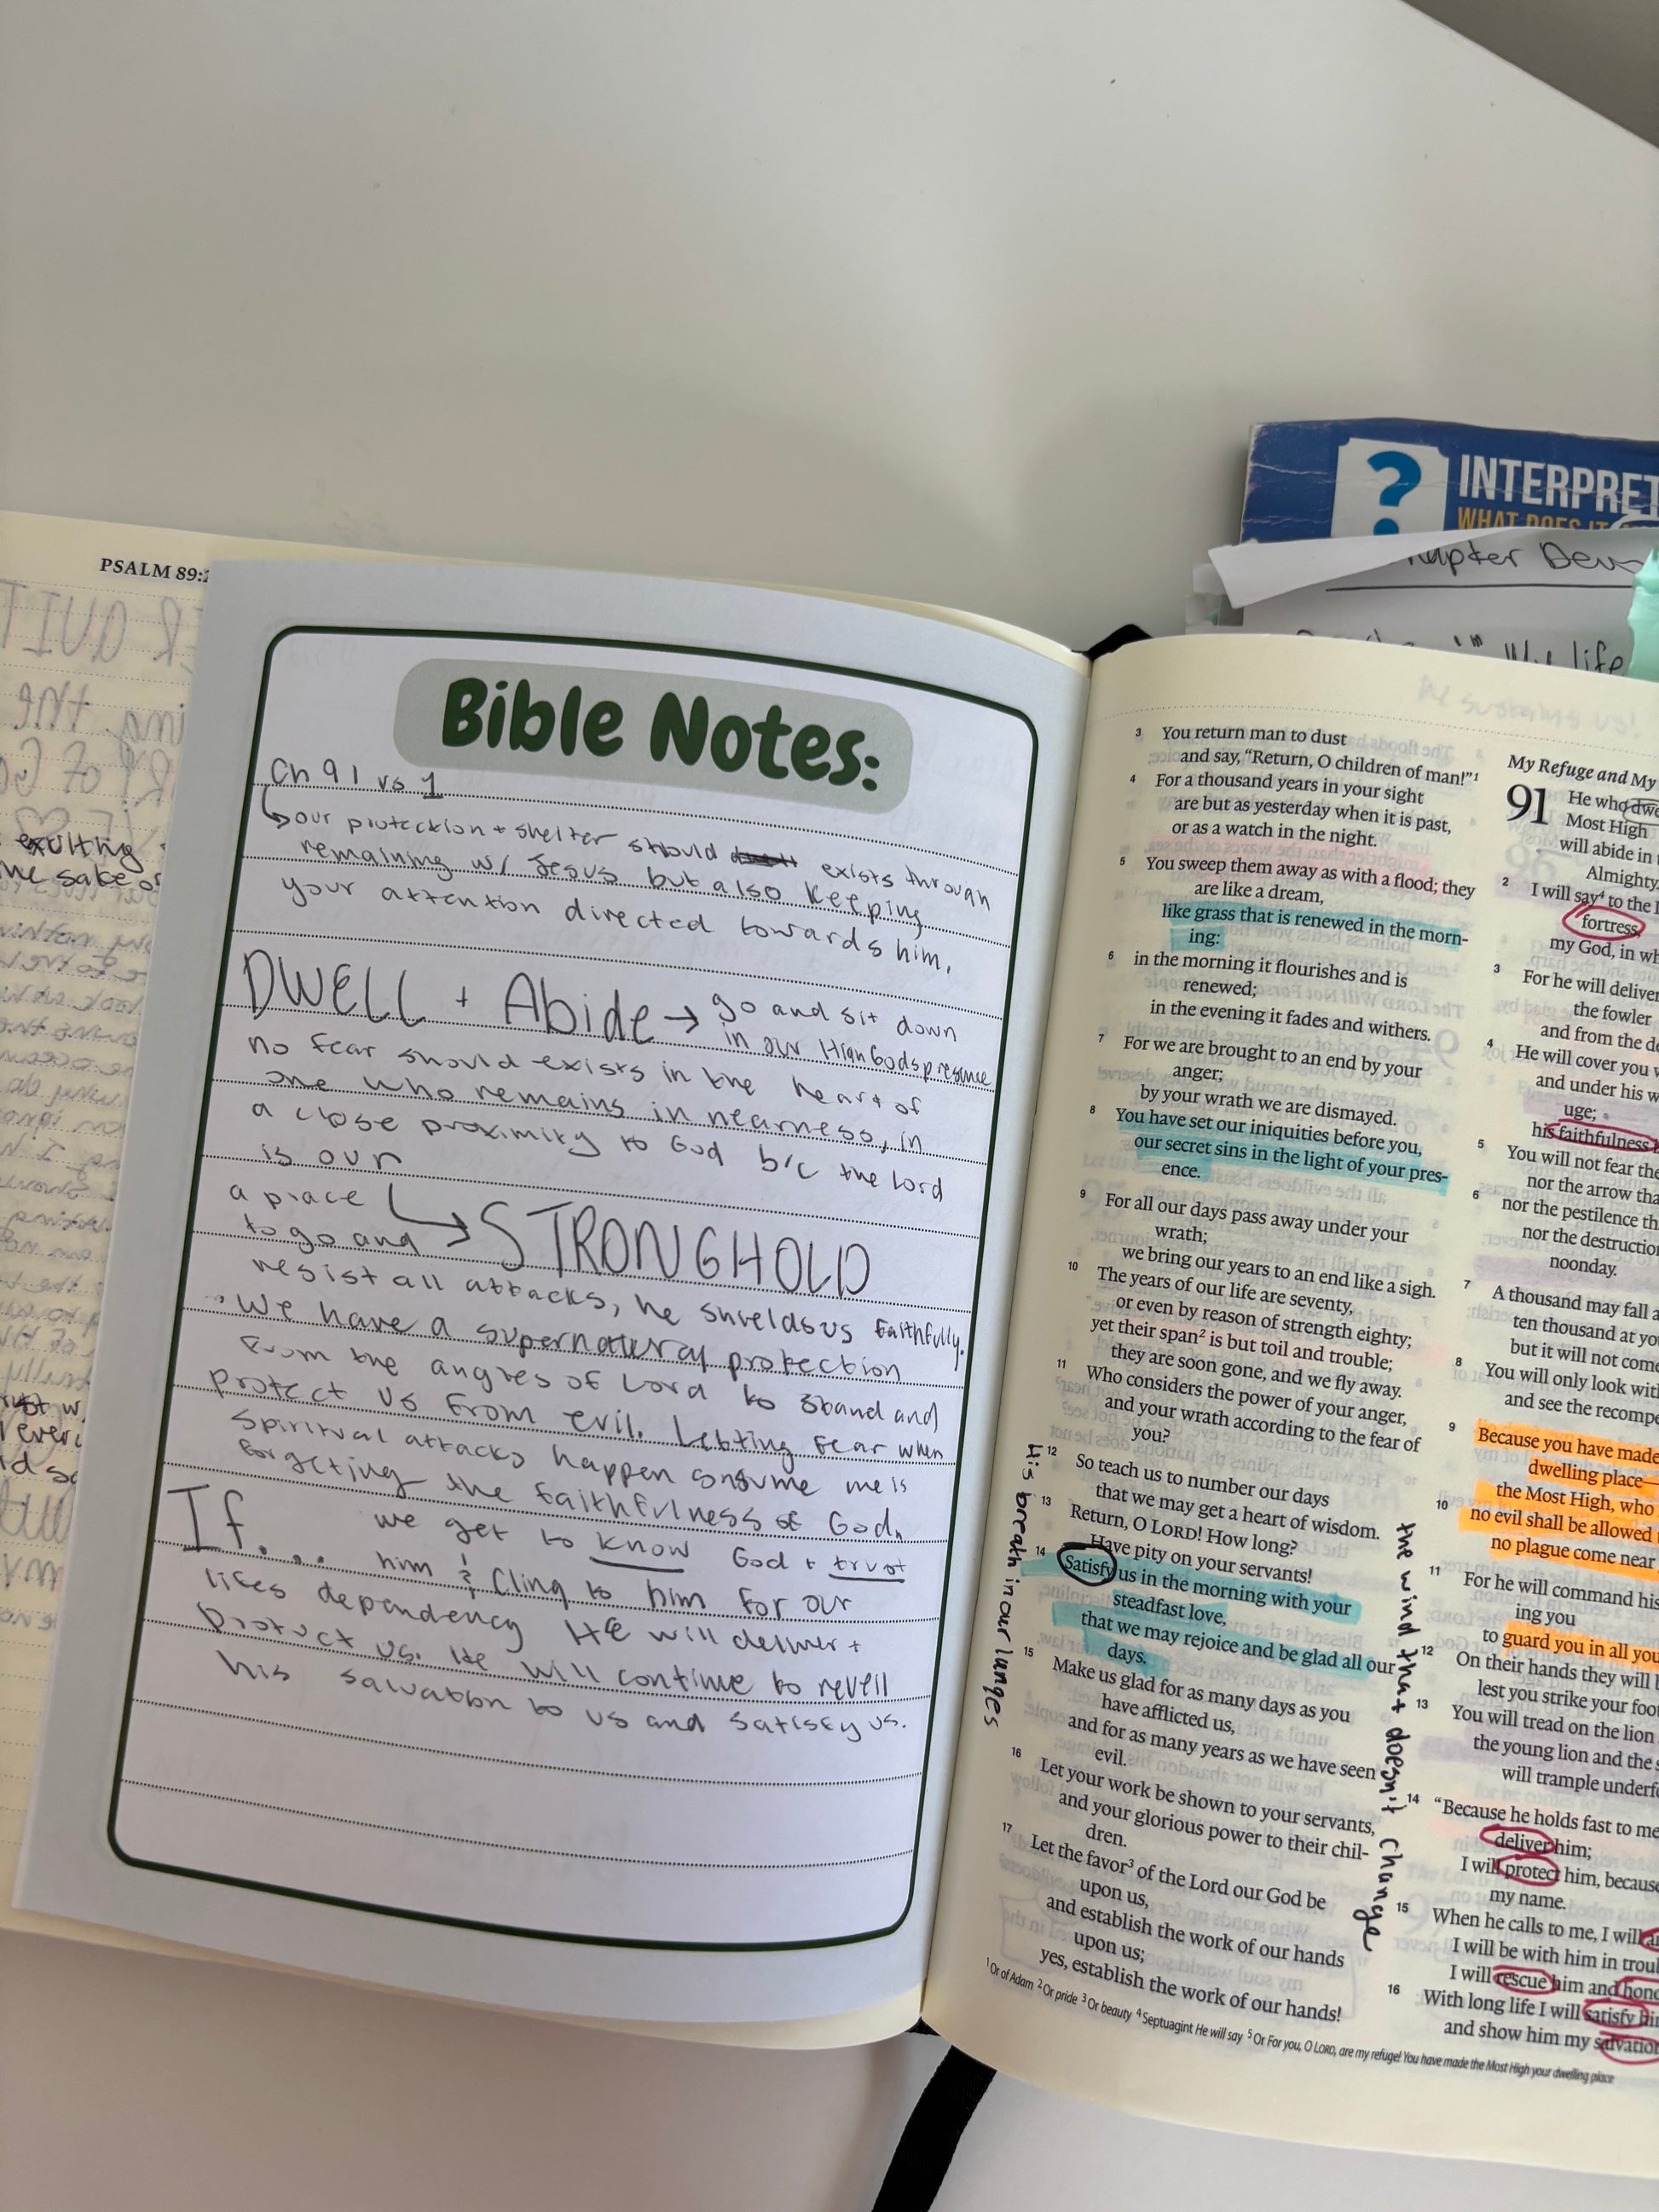 PSALM 89:
exulting
Bible Notes:
Ch 91 vs 1
our protection + shelter should exists through
remaining w/ Jesus but also keeping
your attention directed towards him.
DWELL + Abide → go and sit down
in our High Gods presence
no fear should exists in the heart of
one who remains in nearness, in
a close proximity to God b/c the lord
is our
a place
to go and → STRONGHOLD
resist all attacks, he shields us faithfully.
We have a supernatural protection
from the angles of Lord to stand and
protect us from evil. Letting fear when
spiritual attacks happen consume me is
forgetting the faithfulness of God,
If.... we get to know God + trust
him & Cling to him for our
lifes dependency HE will deliver +
protect us. He will continue to reveil
his salvation to us and satisfy us.
INTERPRET
WHAT DOES IT
life
3 You return man to dust
and say, “Return, O children of man!”1
4 For a thousand years in your sight
are but as yesterday when it is past,
or as a watch in the night.
5 You sweep them away as with a flood; they
are like a dream,
like grass that is renewed in the morn-
ing:
6 in the morning it flourishes and is
renewed;
in the evening it fades and withers.
7 For we are brought to an end by your
anger;
by your wrath we are dismayed.
8 You have set our iniquities before you,
our secret sins in the light of your pres-
ence.
9 For all our days pass away under your
wrath;
we bring our years to an end like a sigh.
10 The years of our life are seventy,
or even by reason of strength eighty;
yet their span2 is but toil and trouble;
they are soon gone, and we fly away.
11 Who considers the power of your anger,
and your wrath according to the fear of
you?
12 So teach us to number our days
that we may get a heart of wisdom.
13 Return, O LORD! How long?
Have pity on your servants!
14 Satisfy us in the morning with your
steadfast love,
that we may rejoice and be glad all our
days.
15 Make us glad for as many days as you
have afflicted us,
and for as many years as we have seen
evil.
16 Let your work be shown to your servants,
and your glorious power to their chil-
dren.
17 Let the favor3 of the Lord our God be
upon us,
and establish the work of our hands
upon us;
yes, establish the work of our hands!
His breath in our lunges
the wind that doesn't change
My Refuge and My
91 He who dwe
Most High
will abide in
Almighty.
2 I will say4 to the
fortress,
my God, in wh
3 For he will deliver
the fowler
and from the de
4 He will cover you
and under his w
uge;
his faithfulness
5 You will not fear the
nor the arrow tha
6 nor the pestilence th
nor the destruction
noonday.
7 A thousand may fall a
ten thousand at yo
but it will not come
8 You will only look wit
and see the recompe
9 Because you have made
dwelling place—
the Most High, who
10 no evil shall be allowed
no plague come near
11 For he will command his
ing you
to guard you in all you
12 On their hands they will
lest you strike your foo
13 You will tread on the lion
the young lion and the s
will trample underf
14 “Because he holds fast to me
deliver him;
I will protect him, because
my name.
15 When he calls to me, I will
I will be with him in trou
I will rescue him and hono
16 With long life I will satisfy hi
and show him my salvation
1 Or of Adam 2 Or pride 3 Or beauty 4 Septuagint He will say 5 Or For you, O LORD, are my refuge! You have made the Most High your dwelling place